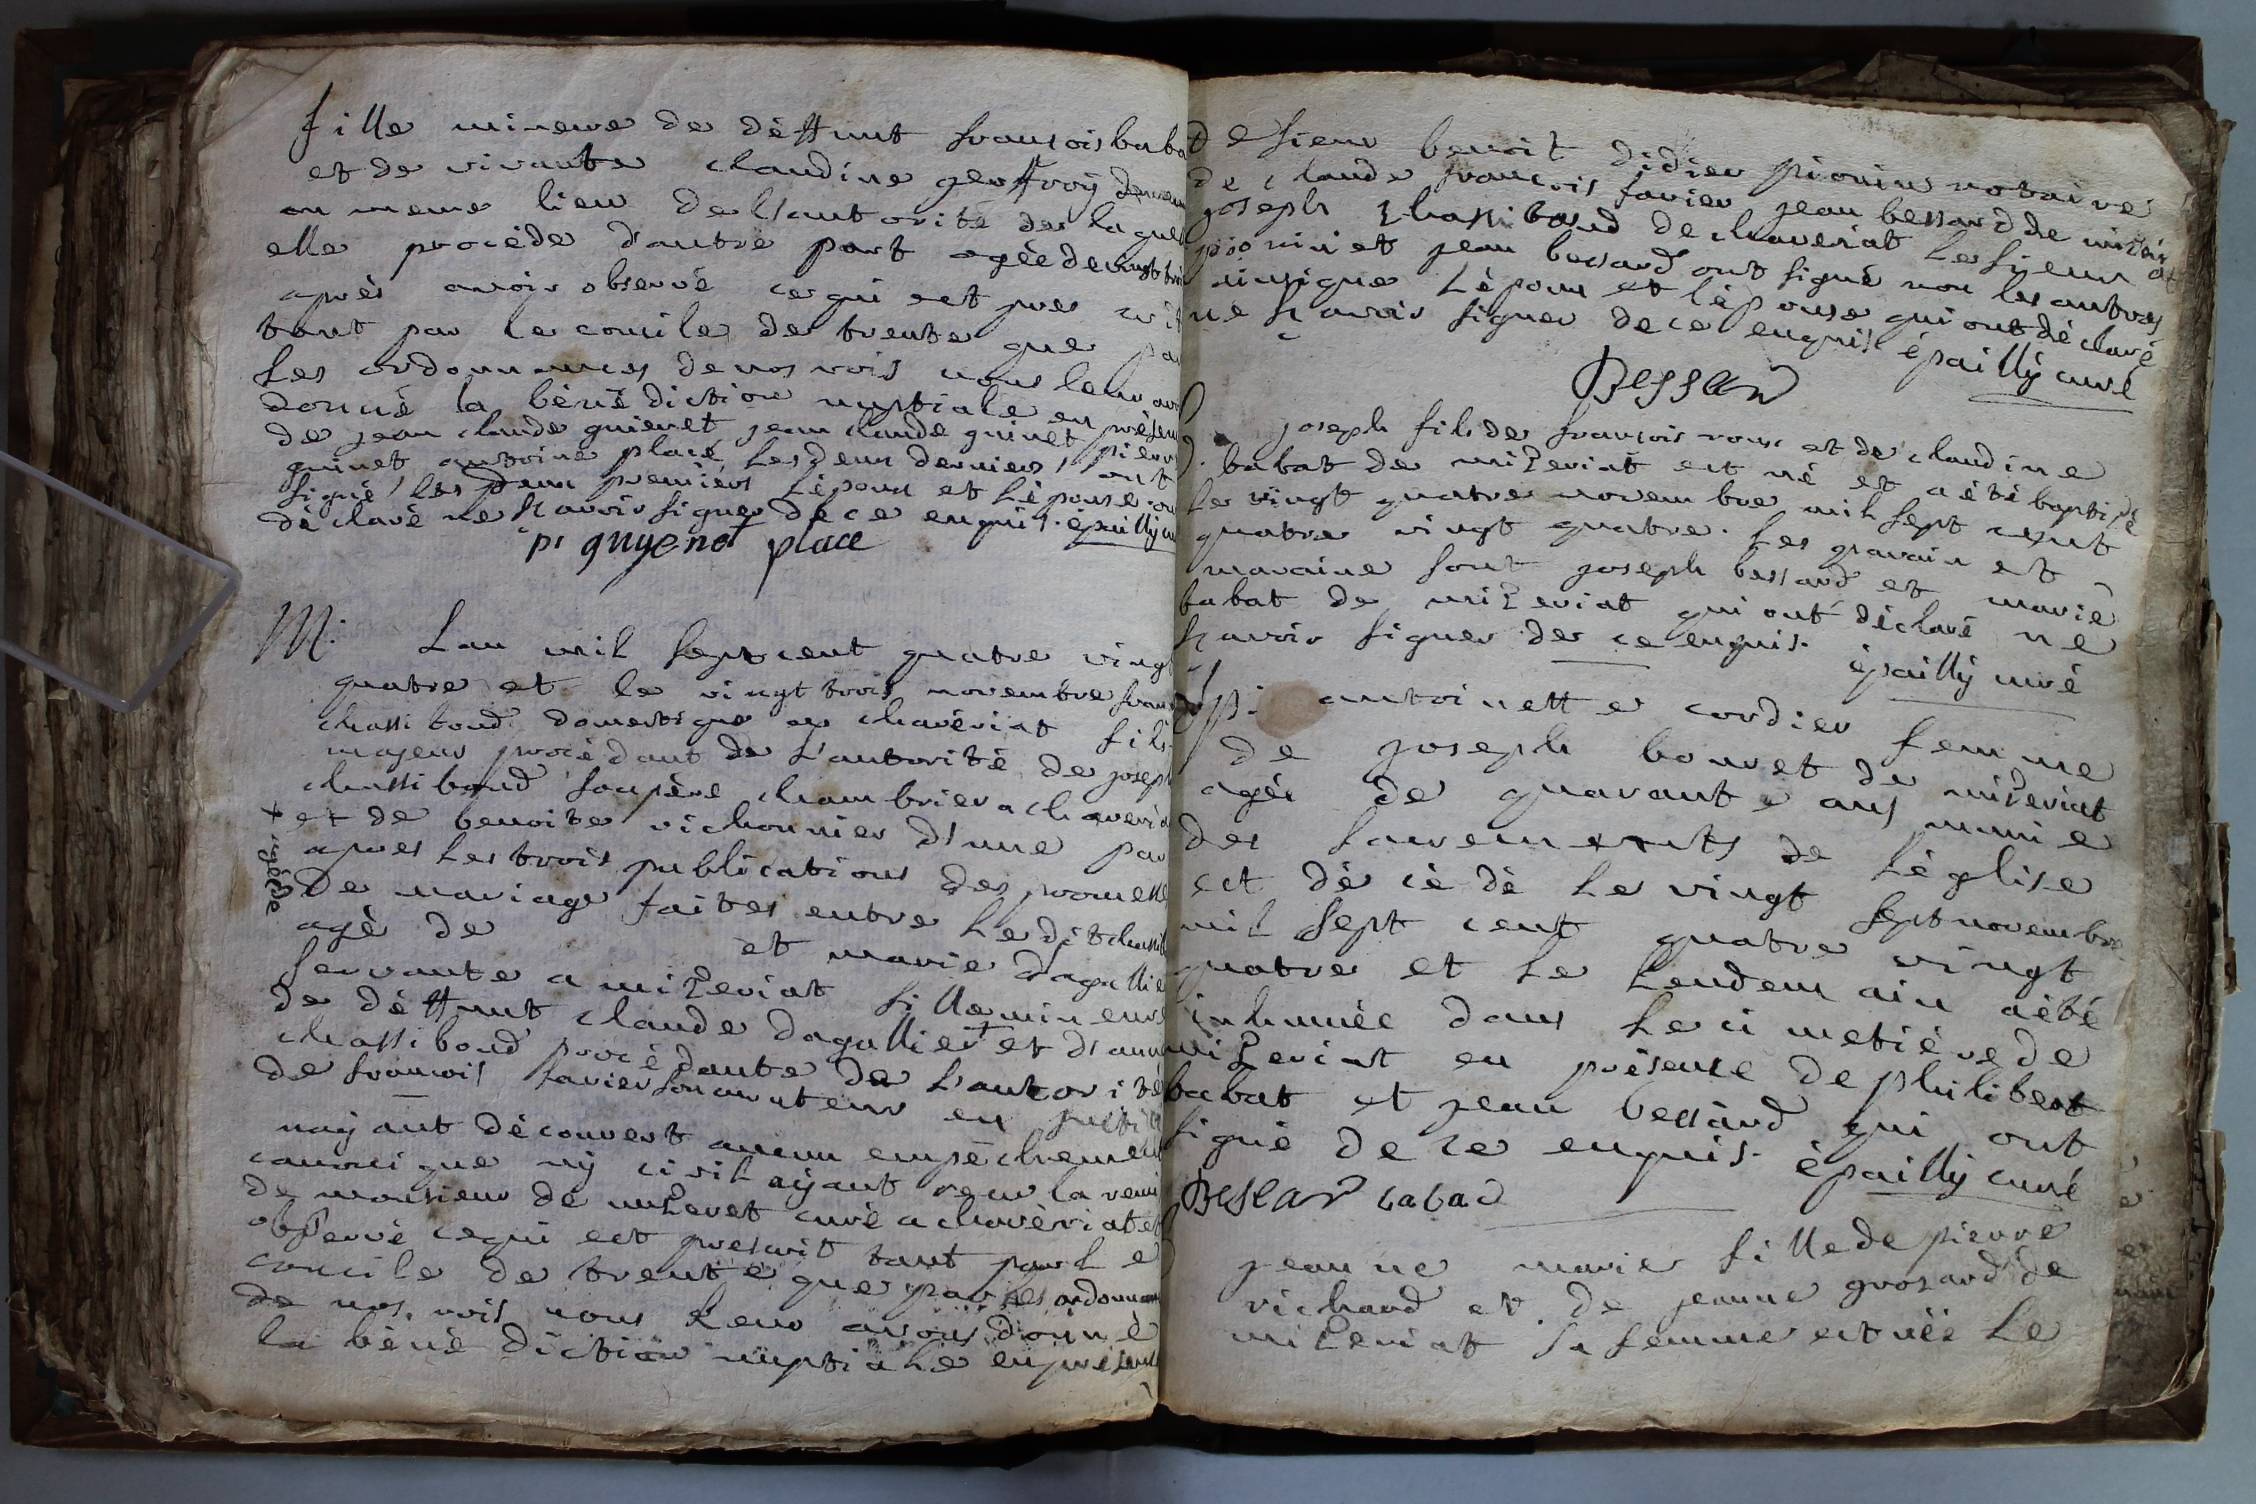 fille mineure de déffunt francois baba
et de vivante claudine geoffroÿ demeur
au meme lieu de l'autorité de laquel
elle procède d'autre part agée de vingt troi
après avoir observé ce qui est pres crit
tant par le concile de trente que par
les ordonnances de nos rois nous leur avo
donné la bénédiction nuptiale en présen
de jean claude guienet jean claude guinet pierre
guinet antoine place les deux derniers ont
signé les deux premiers l'époux et l'épouse on
déclaré ne sçavoir signer de ce enquis. épaillÿ cu
pi guyenot place
M: Lan mil sept cent quatre vingt
quatre et le vingt trois novembre fran
chassiboud domestique a chavériat fils
majeur procédant de l'autorité de joseph
chassiboud son père chambrier a chaveria
et de benoite vichonnier d'une par
apres les trois publications des promesse
de mariage faites entre le dit chassib
agé de et marie dagallie
servante a mizeriat fille mineure
de déffunt claude dagallier + et d'anne
chassiboud procédante de l'autorité
de francois favier son curateur en justic
naÿant découvert aucun empechement
canonique nÿ civil aÿant reçu la remi
de monsieur de mizeret curé a chavériat et
observé ce qui est prescrit tant par le
concile de trente que par les ordonnan
de nos rois nous leur avons donné
la bénédiction nuptiale en présence
+ agée de
de sieur benoit didier pionin notaire
de claude francois favier jean bessard de mizériat
joseph chassiboud de chaveriat le sieur
pionin et jean bessard ont signé non les autres
ni l'époux et l'épouse qui ont déclaré
ne sçavoir signer de ce enquis épaillÿ curé
Bessard
joseph fils de francois roux et de claudine
babat de mizeriat est né et a été baptisé
le vingt quatre novembre mil sept cent
quatre vingt quatre. les parain et
maraine sont joseph bessard et marie
babat de mizeriat qui ont déclaré ne
sçavoir signer de ce enquis. épaillÿ curé
antoinette cordier femme
de joseph bouvet de mizeriat
agée de quarante ans munie
des sacrements de l'église
est décédé le vingt sept novembre
mil sept cent quatre vingt
quatre et le lendemain a été
inhumée dans le cimetière de
mizeriat en présence de philibert
babat et jean bessard qui ont
signé de ce enquis. épaillÿ curé
Bessard babad
jeanne marie fille de pierre
richard et de jeanne grosard de
mizeriat sa femme est née le